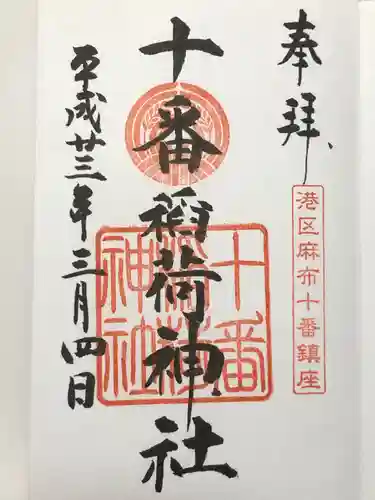 奉拝、
港区麻布十番鎮座
十番稲荷神社
十番稲荷神社
平成廿三年三月四日